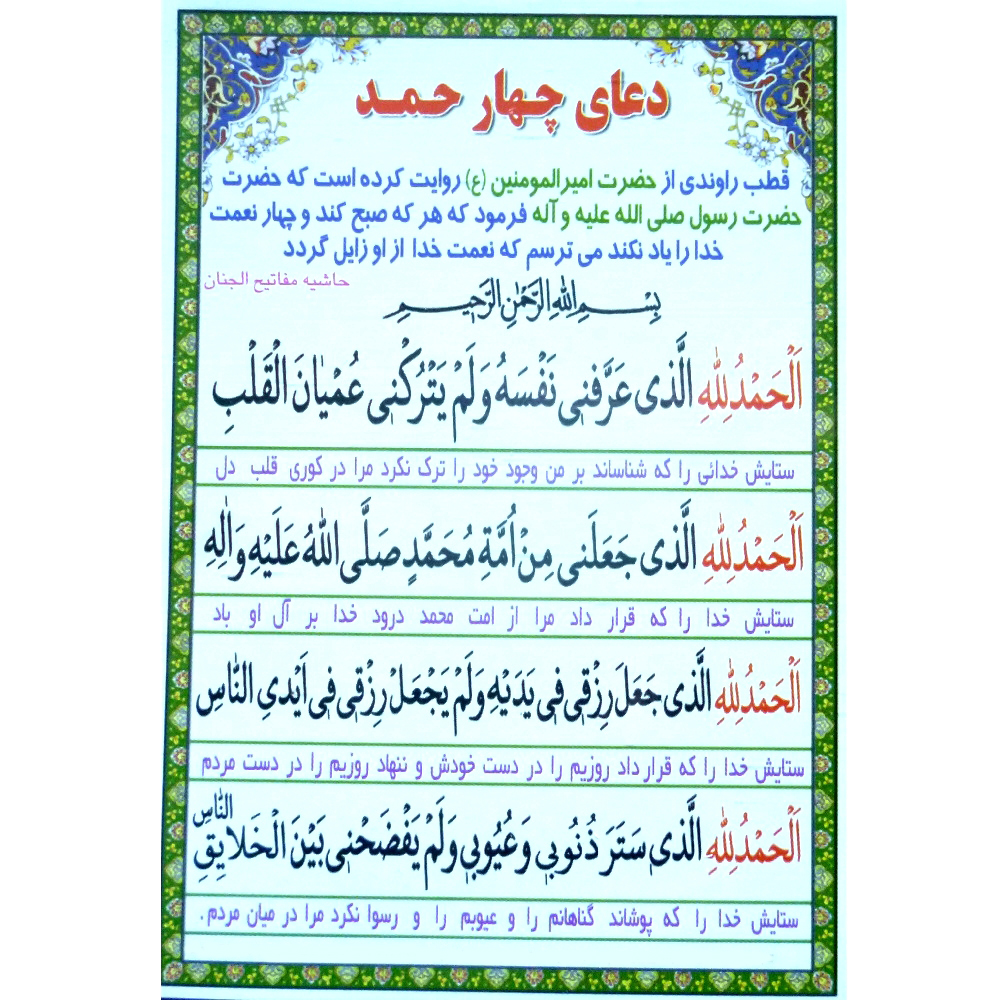 دعای چهار حمد
قطب راوندی از حضرت امیرالمومنین (ع) روایت کرده است که حضرت
حضرت رسول صلی الله علیه و آله فرمود که هر که صبح کند و چهار نعمت
خدا را یاد نکند می ترسم که نعمت خدا از او زایل گردد
حاشیه مفاتیح الجنان
بِسْمِ اللهِ الرَّحْمٰنِ الرَّحیمِ
اَلْحَمْدُ لِلّٰهِ الَّذی عَرَّفَنی نَفْسَهُ وَلَمْ یَتْرُکْنی عُمْیٰانَ الْقَلْبِ
ستایش خدائی را که شناساند بر من وجود خود را ترک نکرد مرا در کوری قلب دل
اَلْحَمْدُ لِلّٰهِ الَّذی جَعَلَنی مِنْ اُمَّةِ مُحَمَّدٍ صَلَّی اللهُ عَلَیْهِ وَاٰلِهِ
ستایش خدا را که قرار داد مرا از امت محمد درود خدا بر آل او باد
اَلْحَمْدُ لِلّٰهِ الَّذی جَعَلَ رِزْقی فی یَدَیْهِ وَلَمْ یَجْعَلْ رِزْقی فی اَیْدِی النّٰاسِ
ستایش خدا را که قرار داد روزیم را در دست خودش و ننهاد روزیم را در دست مردم
اَلْحَمْدُ لِلّٰهِ الَّذی سَتَرَ ذُنُوبی وَعُیُوبی وَلَمْ یَفْضَحْنی بَیْنَ الْخَلایِقِ
النّٰاسِ
ستایش خدا را که پوشاند گناهانم را و عیوبم را و رسوا نکرد مرا در میان مردم.